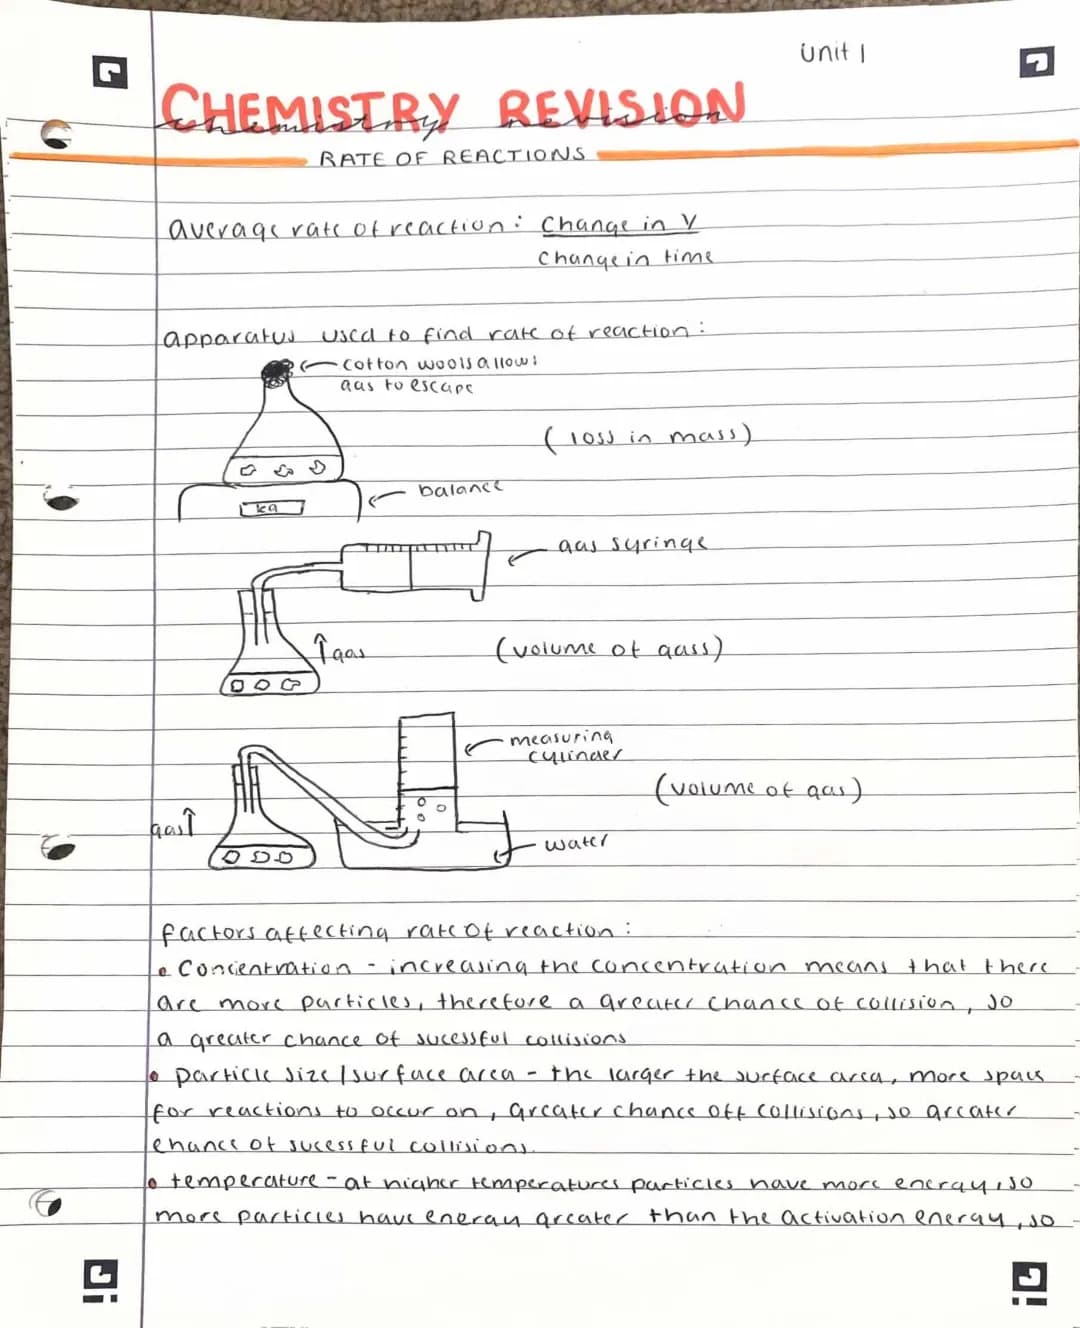 Unit 1
CHEMISTRY REVISION
chemistry revision
RATE OF REACTIONS
average rate of reaction: Change in V
Change in time
apparatus used to find rate of reaction:
cotton wools allows
gas to escape
(loss in mass)
balance
kg
gas syringe
↑gas
(volume of gass)
measuring
cylinder
(volume of gas)
gas↑
water
factors affecting rate of reaction:
• Concentration - increasing the concentration means that there
are more particles, therefore a greater chance of collision, so
a greater chance of sucessful collisions
• particle size/surface area - the larger the surface area, more space
for reactions to occur on, greater chance off collisions, so greater
chance of sucessful collisions.
• temperature - at higher temperatures particles have more energy, so
more particles have energy greater than the activation energy, so